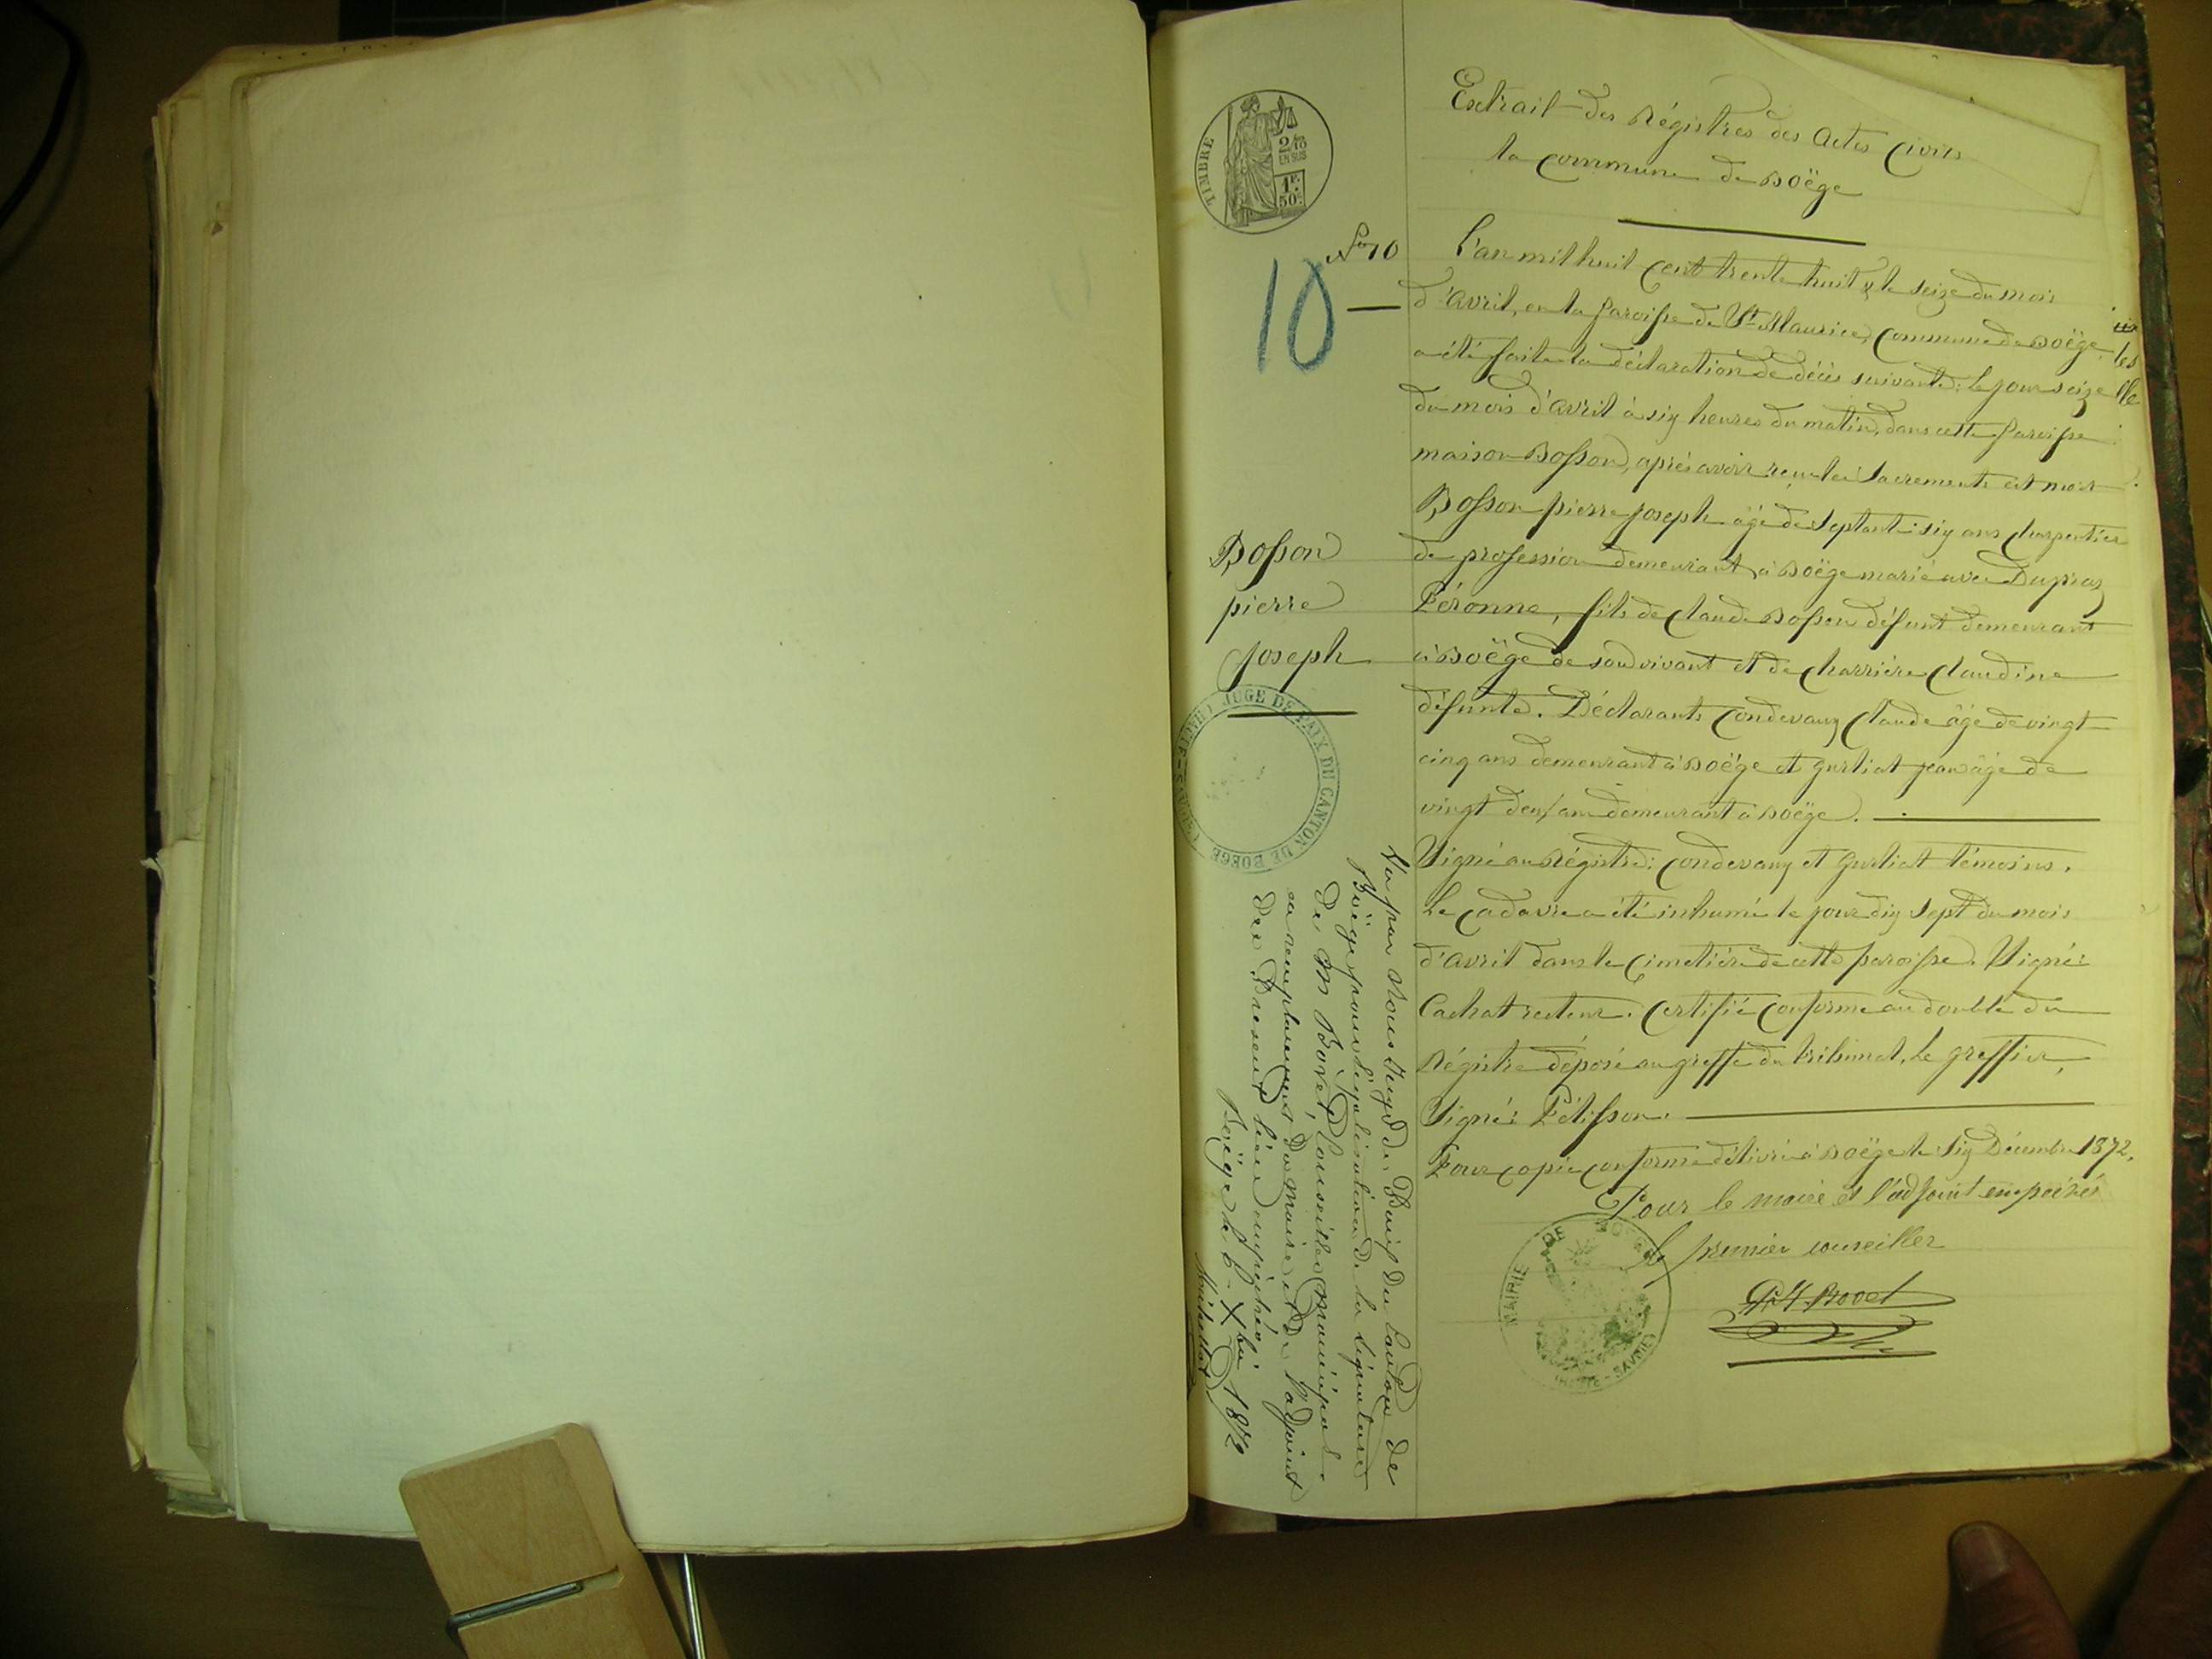 Extrait des Régistres des Actes Civils
la Commune de Boëge
TIMBRE
2/10
EN SUS
1F.
50c.
No 10
10
L'an mil huit cent trente huit & le seize du mois
d'Avril, en la Paroisse de St Maurice, Commune de Boëge
a été faite la déclaration de décès suivante: le jour seize
du mois d'Avril à six heures du matin, dans cette Paroisse
maison Bosson, après avoir reçu les Sacrements est mort
Bosson pierre joseph âgé de Septante-six ans charpentier
de profession demeurant à Boëge marié avec Dupraz
Péronne, fils de Claude Bosson défunt demeurant
à Boëge de son vivant et de Charrière Claudine
défunte. Déclarants Condevaux Claude âgé de vingt
cinq ans demeurant à Boëge et Gurliat jean âgé de
vingt deux ans demeurant à Boëge.
Signé au Régistre: Condevaux et Gurliat témoins.
Le Cadavre a été inhumé le jour dix sept du mois
d'avril dans le Cimetière de cette paroisse. Signé:
Cachat recteur. Certifié Conforme au double du
Régistre déposé au greffe du tribunal, Le greffier,
Signé: Pélisson.
Pour copie conforme délivrée à Boëge le Six Décembre 1872.
Pour le maire et l'adjoint empêchés
Le premier conseiller
Bovet
MAIRIE DE BOËGE
(HAUTE-SAVOIE)
Bosson
pierre
joseph
JUGE DE PAIX DU CANTON DE BOËGE (HAUTE-SAVOIE)
Vu par Nous Juge de Paix du Canton de
Boëge pour légalisation de la signature
de M Bovet, Conseiller municipal
en remplacement du maire et de l'adjoint
empêchés
Boëge le 6 Xbre 1872